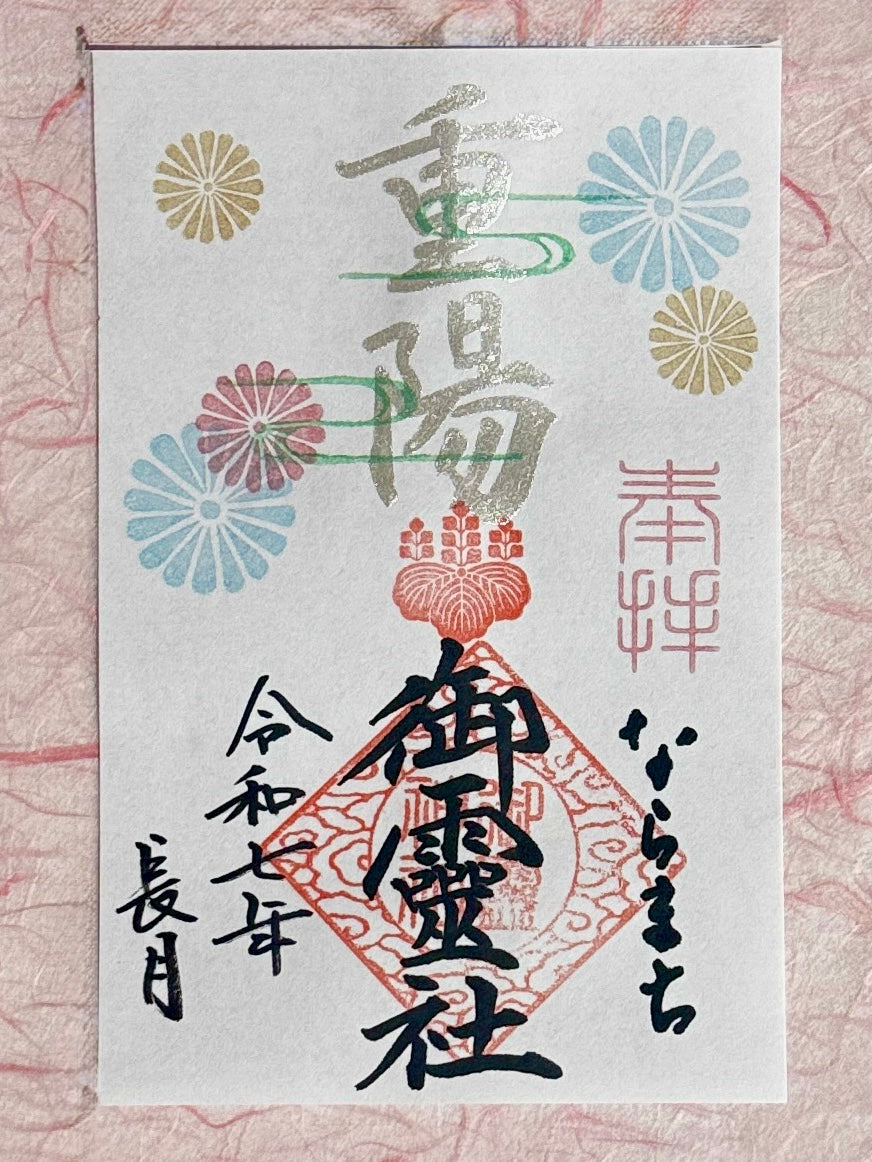 奉拝
ならまち
重陽
御靈社
令和七年
長月